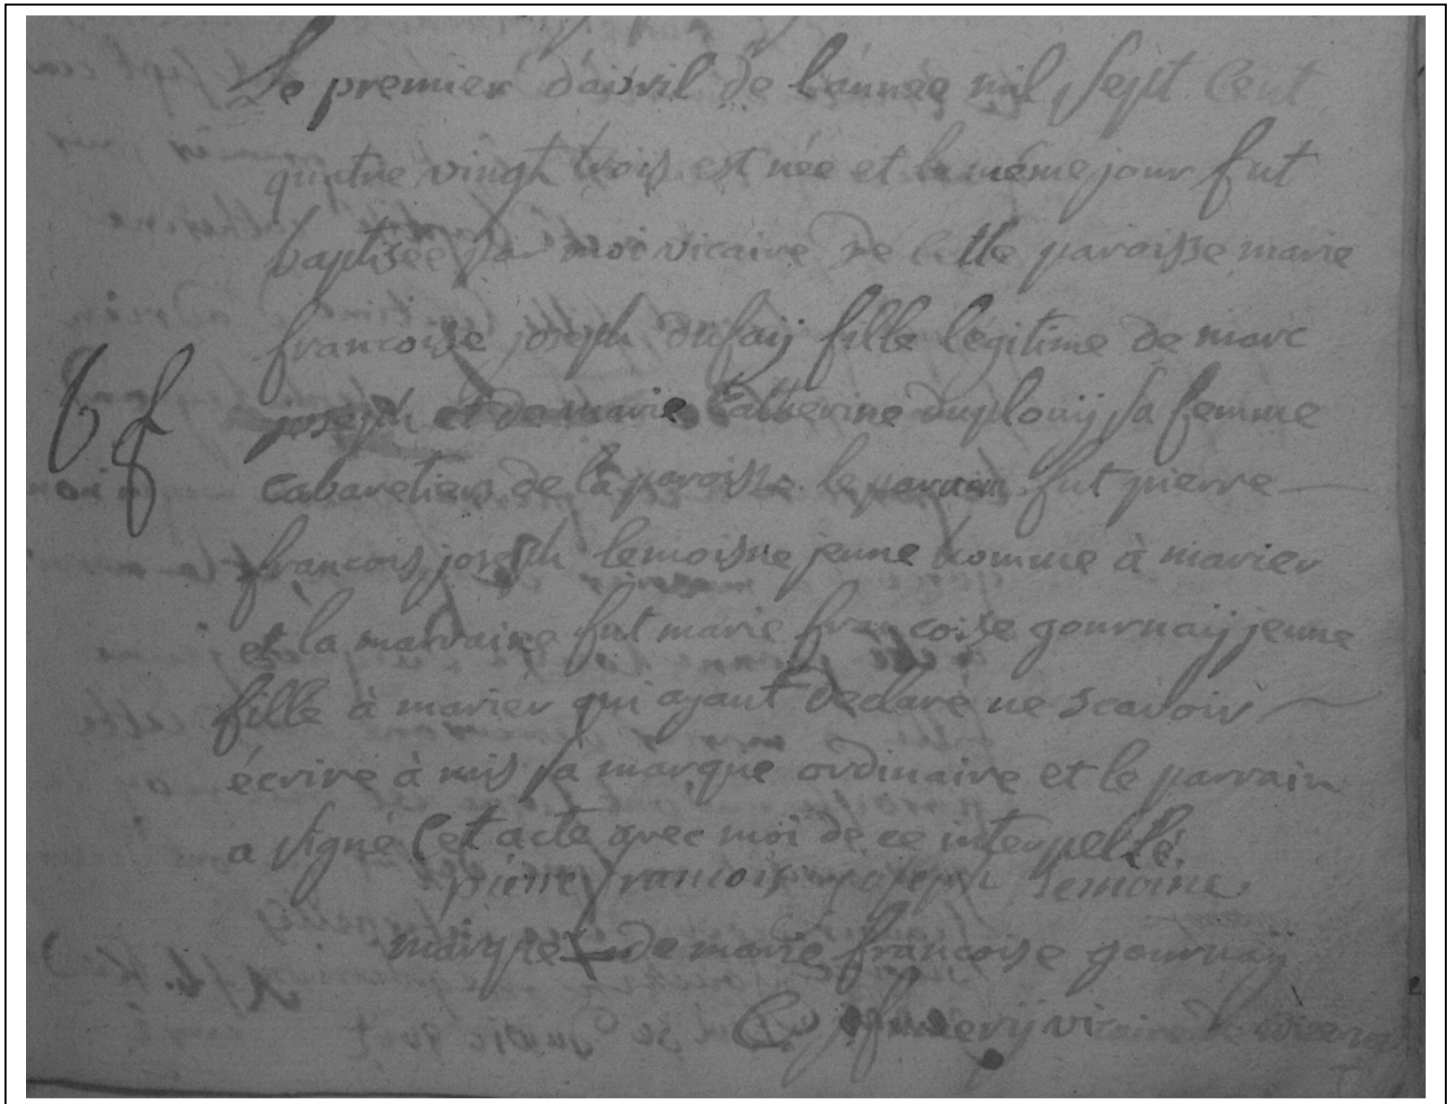 Le premier d'avril de l'année mil Sept Cent
quatre vingt trois est née et le même jour fut
baptisée par moi vicaire de cette paroisse marie
francoise joseph dufaÿ fille légitime de marc
joseph et de marie Catherine duplouÿ sa femme
cabaretiers de la paroisse le parrain fut pierre
francois joseph lemoisne jeune homme à marier
et la marraine fut marie francoise gournaÿ jeune
fille à marier qui ayant declaré ne scavoir
écrire à mis sa marque ordinaire et le parrain
6 f
a signé Cet acte avec moi de ce interpellé.
pierre francois joseph Lemoine
marque de marie francoise gournaÿ
vicaire de